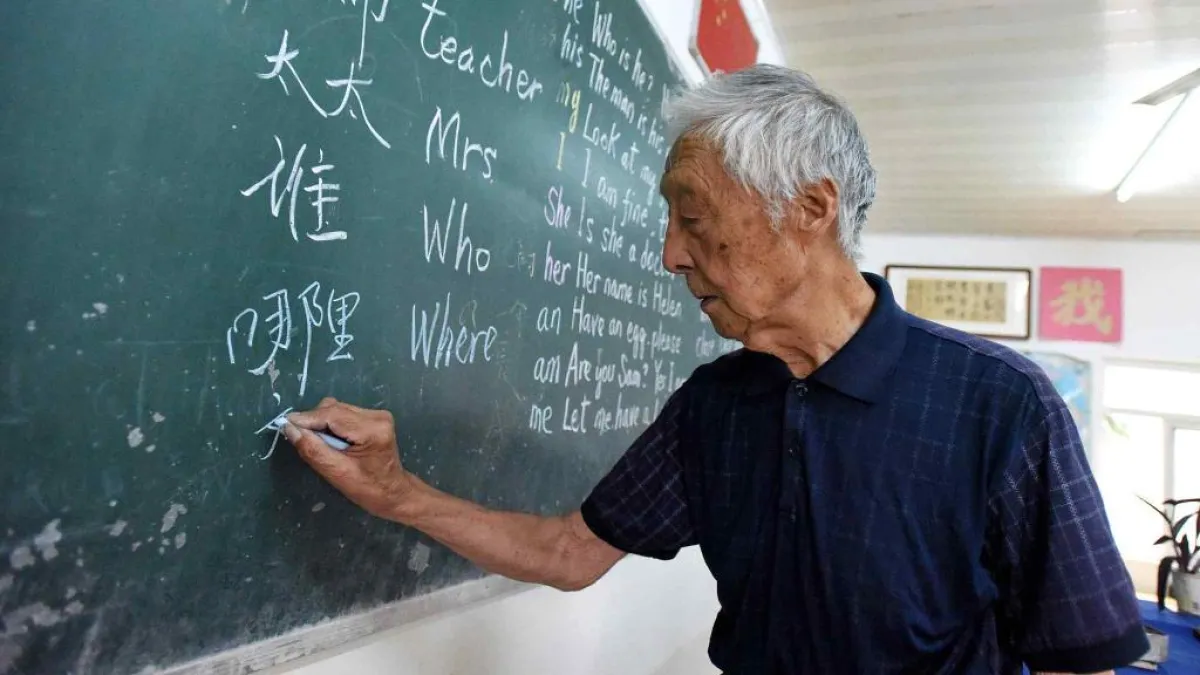 teacher
太太 Mrs
谁 Who
哪里 Where
he Who is he?
his The man is his
my Look at my
I I am fine, t
She Is she a doct
her Her name is Helen
an Have an egg please
am Are you Sam? Yes I
me Let me have a
我